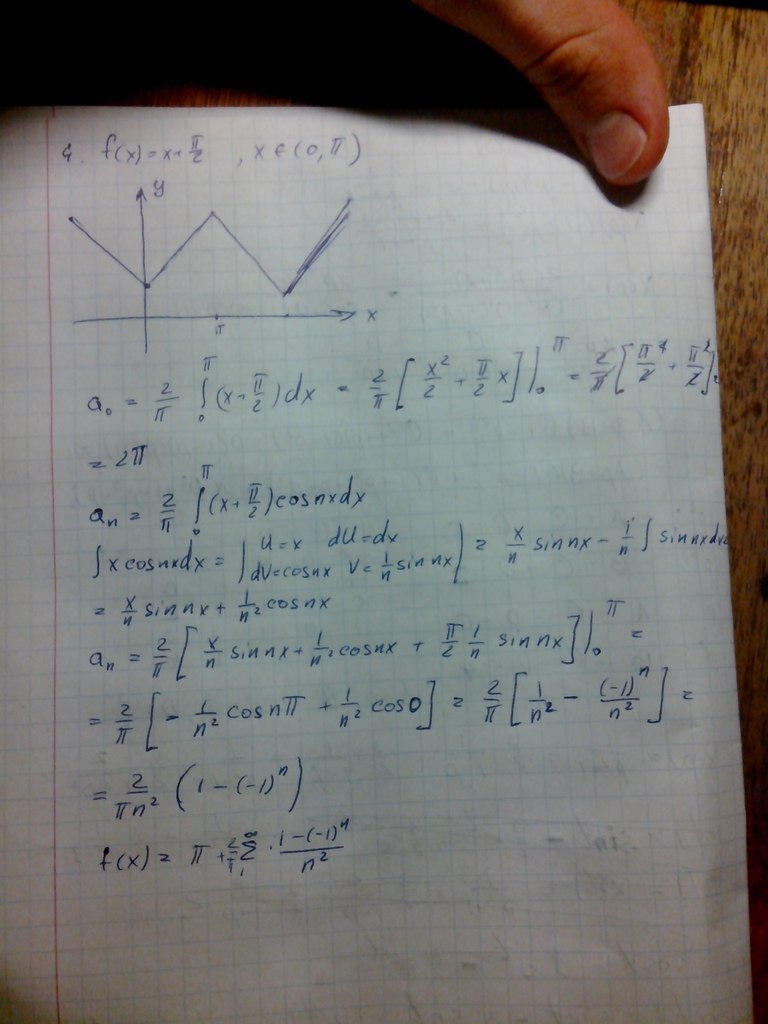 4. f(x) = x + π/2 , x ∈ (0, π)
y
x
π
a₀ = 2/π ∫₀^π (x + π/2) dx = 2/π [x²/2 + π/2 x] |₀^π = 2/π [π²/2 + π²/2] =
= 2π
aₙ = 2/π ∫₀^π (x + π/2) cos nx dx
∫ x cos nx dx = | U = x dU = dx dV = cos nx V = 1/n sin nx | = x/n sin nx − 1/n ∫ sin nx dx =
= x/n sin nx + 1/n² cos nx
aₙ = 2/π [x/n sin nx + 1/n² cos nx + π/2 1/n sin nx] |₀^π =
= 2/π [− 1/n² cos nπ + 1/n² cos 0] = 2/π [1/n² − (-1)ⁿ/n²] =
= 2/(πn²) (1 − (-1)ⁿ)
f(x) = π + 2/π Σ₁^∞ · (1 − (-1)ⁿ)/n²